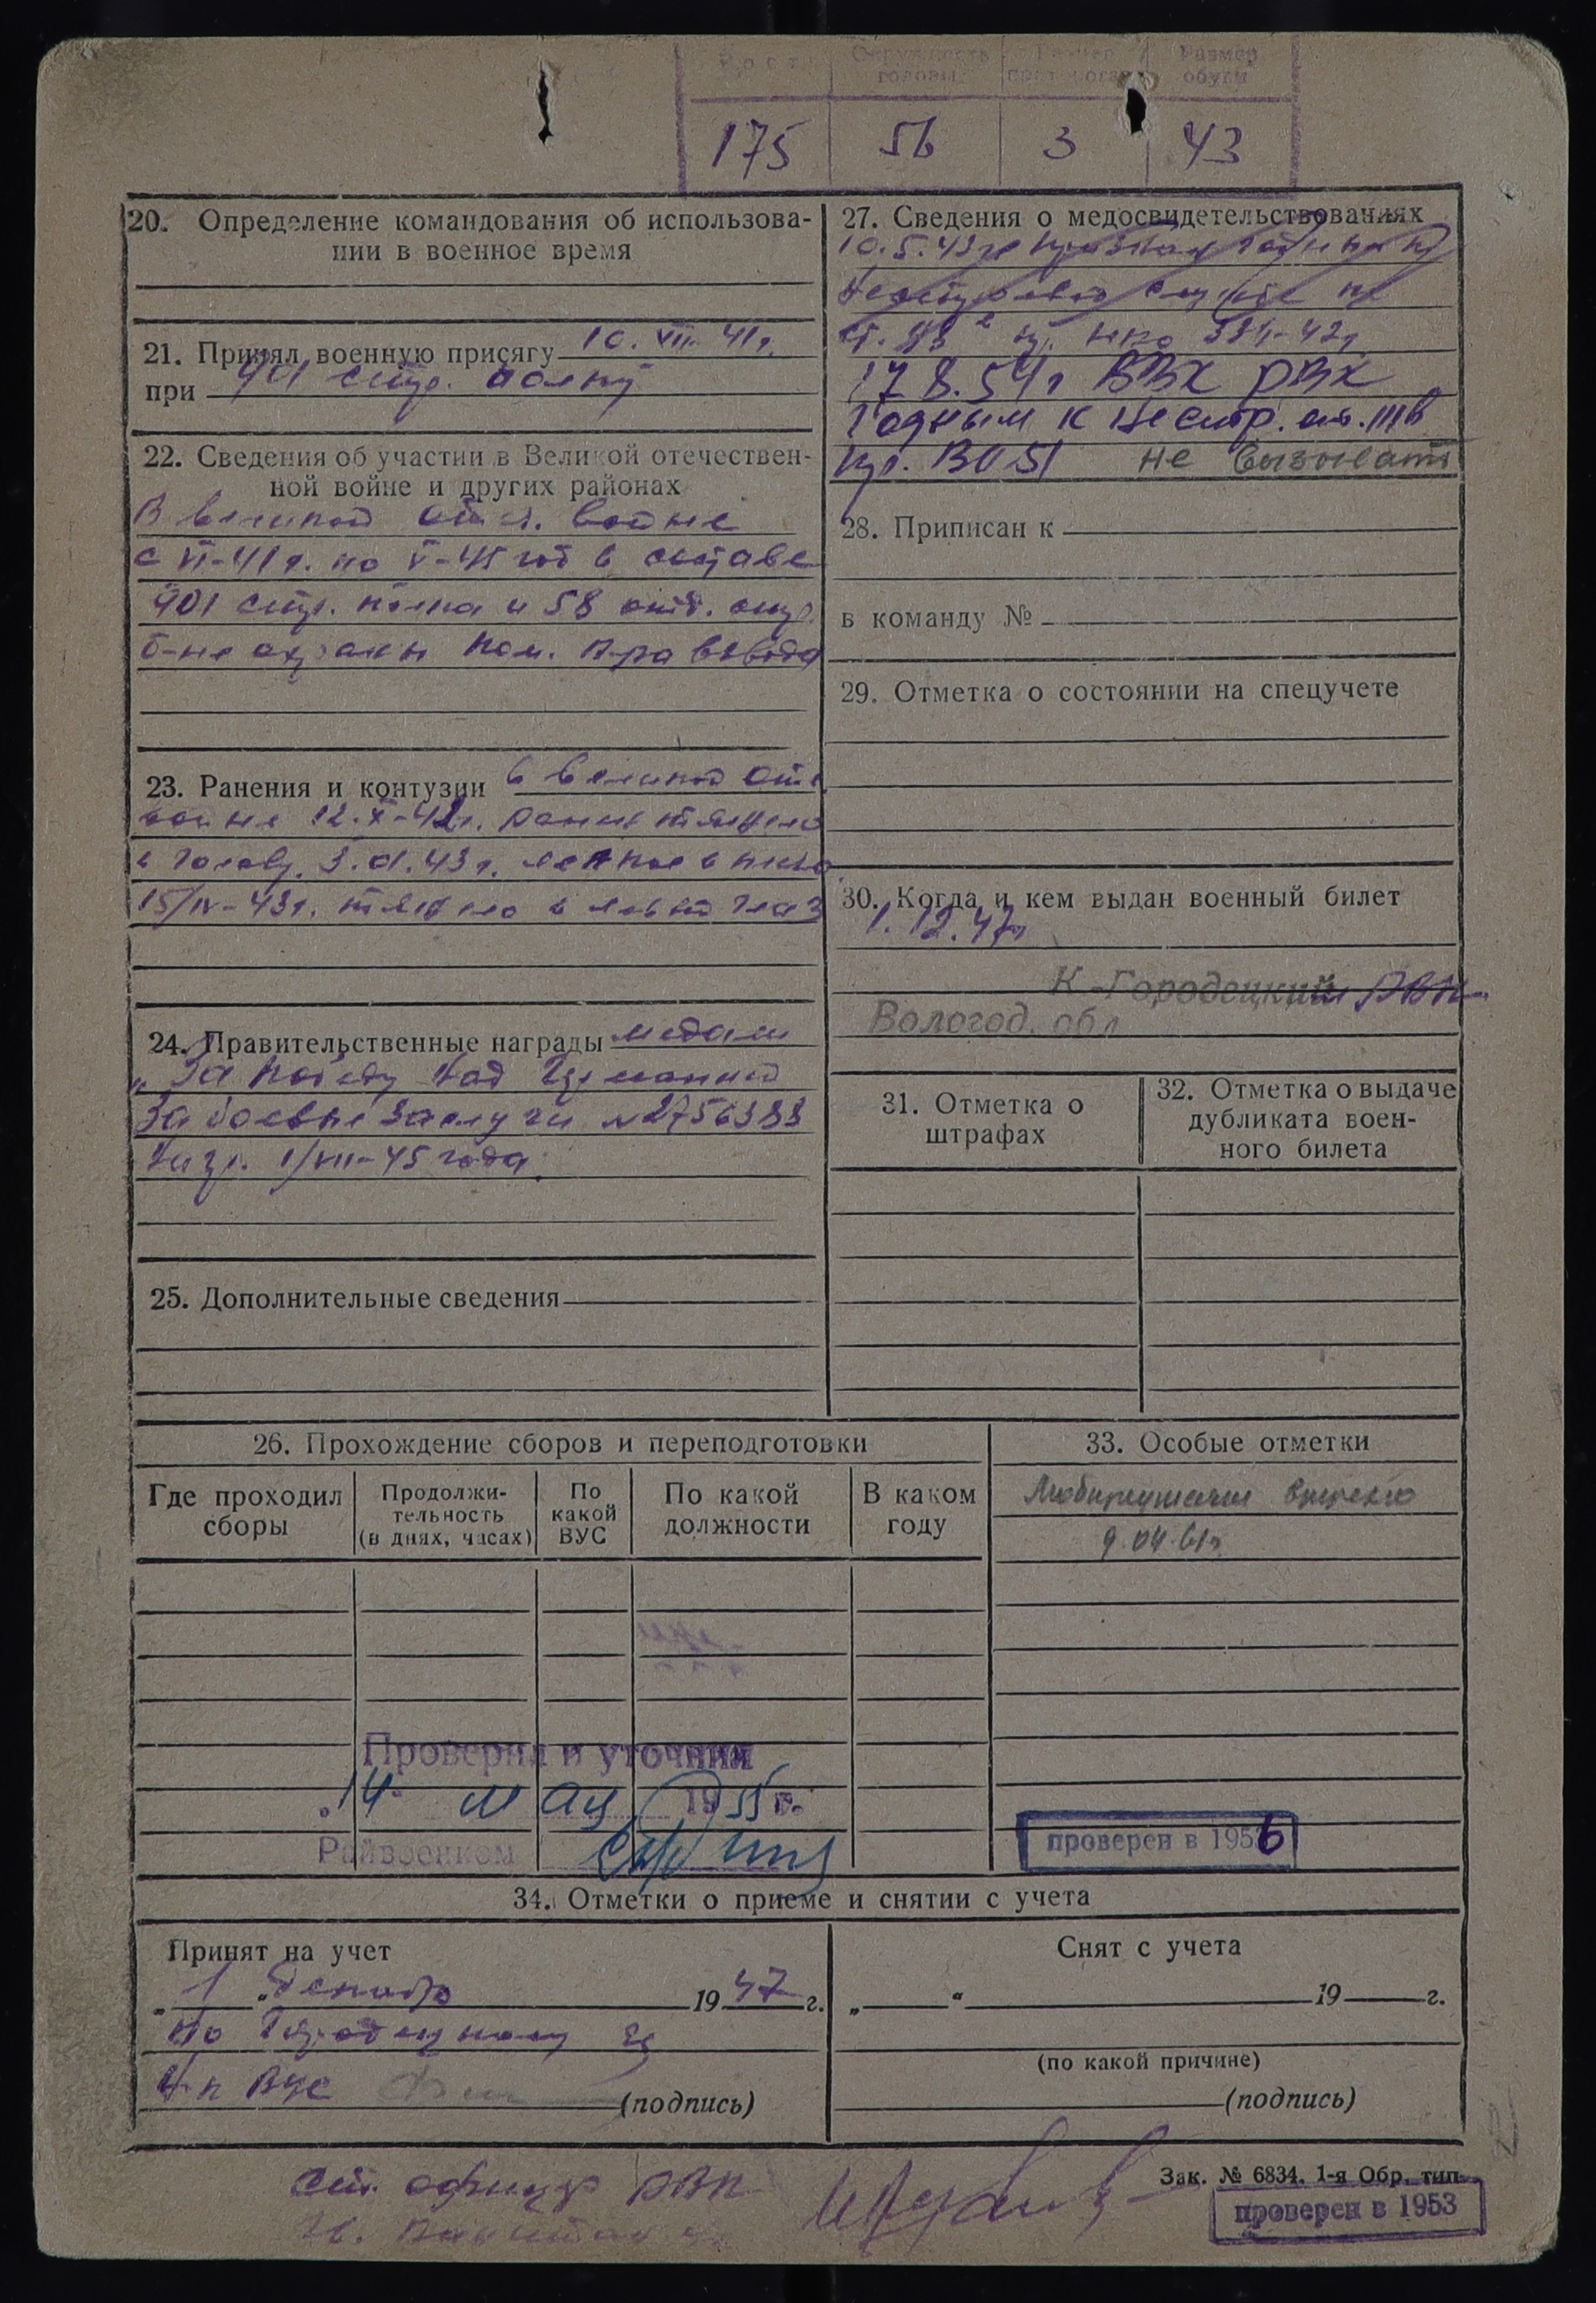 Рост Окружность головы Размер противогаза Размер обуви
175 56 3 43
20. Определение командования об использова-
нии в военное время
21. Принял военную присягу 10.VII-41г.
при 901 стр. полку
22. Сведения об участии в Великой отечествен-
ной войне и других районах
В великой отеч. войне
с VI-41г. по V-45 год в составе
901 стр. полка и 58 отд. стр.
б-не охраны пом. к-ра взвода
23. Ранения и контузии в великой отеч
войне 12.X-42г. ранен тяжело
в голову. 3.01.43г. легкое в
15/IV-43г. тяжело в левый глаз
24. Правительственные награды медали
„За победу над Германией
За боевые заслуги №2756383
1/VII-45 года.
25. Дополнительные сведения
26. Прохождение сборов и переподготовки
Где проходил сборы
Продолжи-тельность (в днях, часах)
По какой ВУС
По какой должности
В каком году
Проверил и уточнил
„14" мая 1955 г.
Райвоенком
27. Сведения о медосвидетельствованиях
10.5.43г признан годным к
нестроевой службе по
ст. НКО 336-42г
17 8.54г ВВК РВК
Годным к нестр. ст. IIIв
пр. ВО 51 не вызывать
28. Приписан к
в команду №
29. Отметка о состоянии на спецучете
30. Когда и кем выдан военный билет
1.12.47г
К-Городецким РВК
Вологод. обл
31. Отметка о
штрафах
32. Отметка о выдаче
дубликата воен-
ного билета
33. Особые отметки
9.04.61г
проверен в 1956
34. Отметки о приеме и снятии с учета
Принят на учет
„1" декабр 1947 г.
по Городецкому
ВУС (подпись)
Снят с учета
„ " 19 г.
(по какой причине)
(подпись)
ст. офицер РВК
Зак. № 6834. 1-я Обр. тип.
проверен в 1953